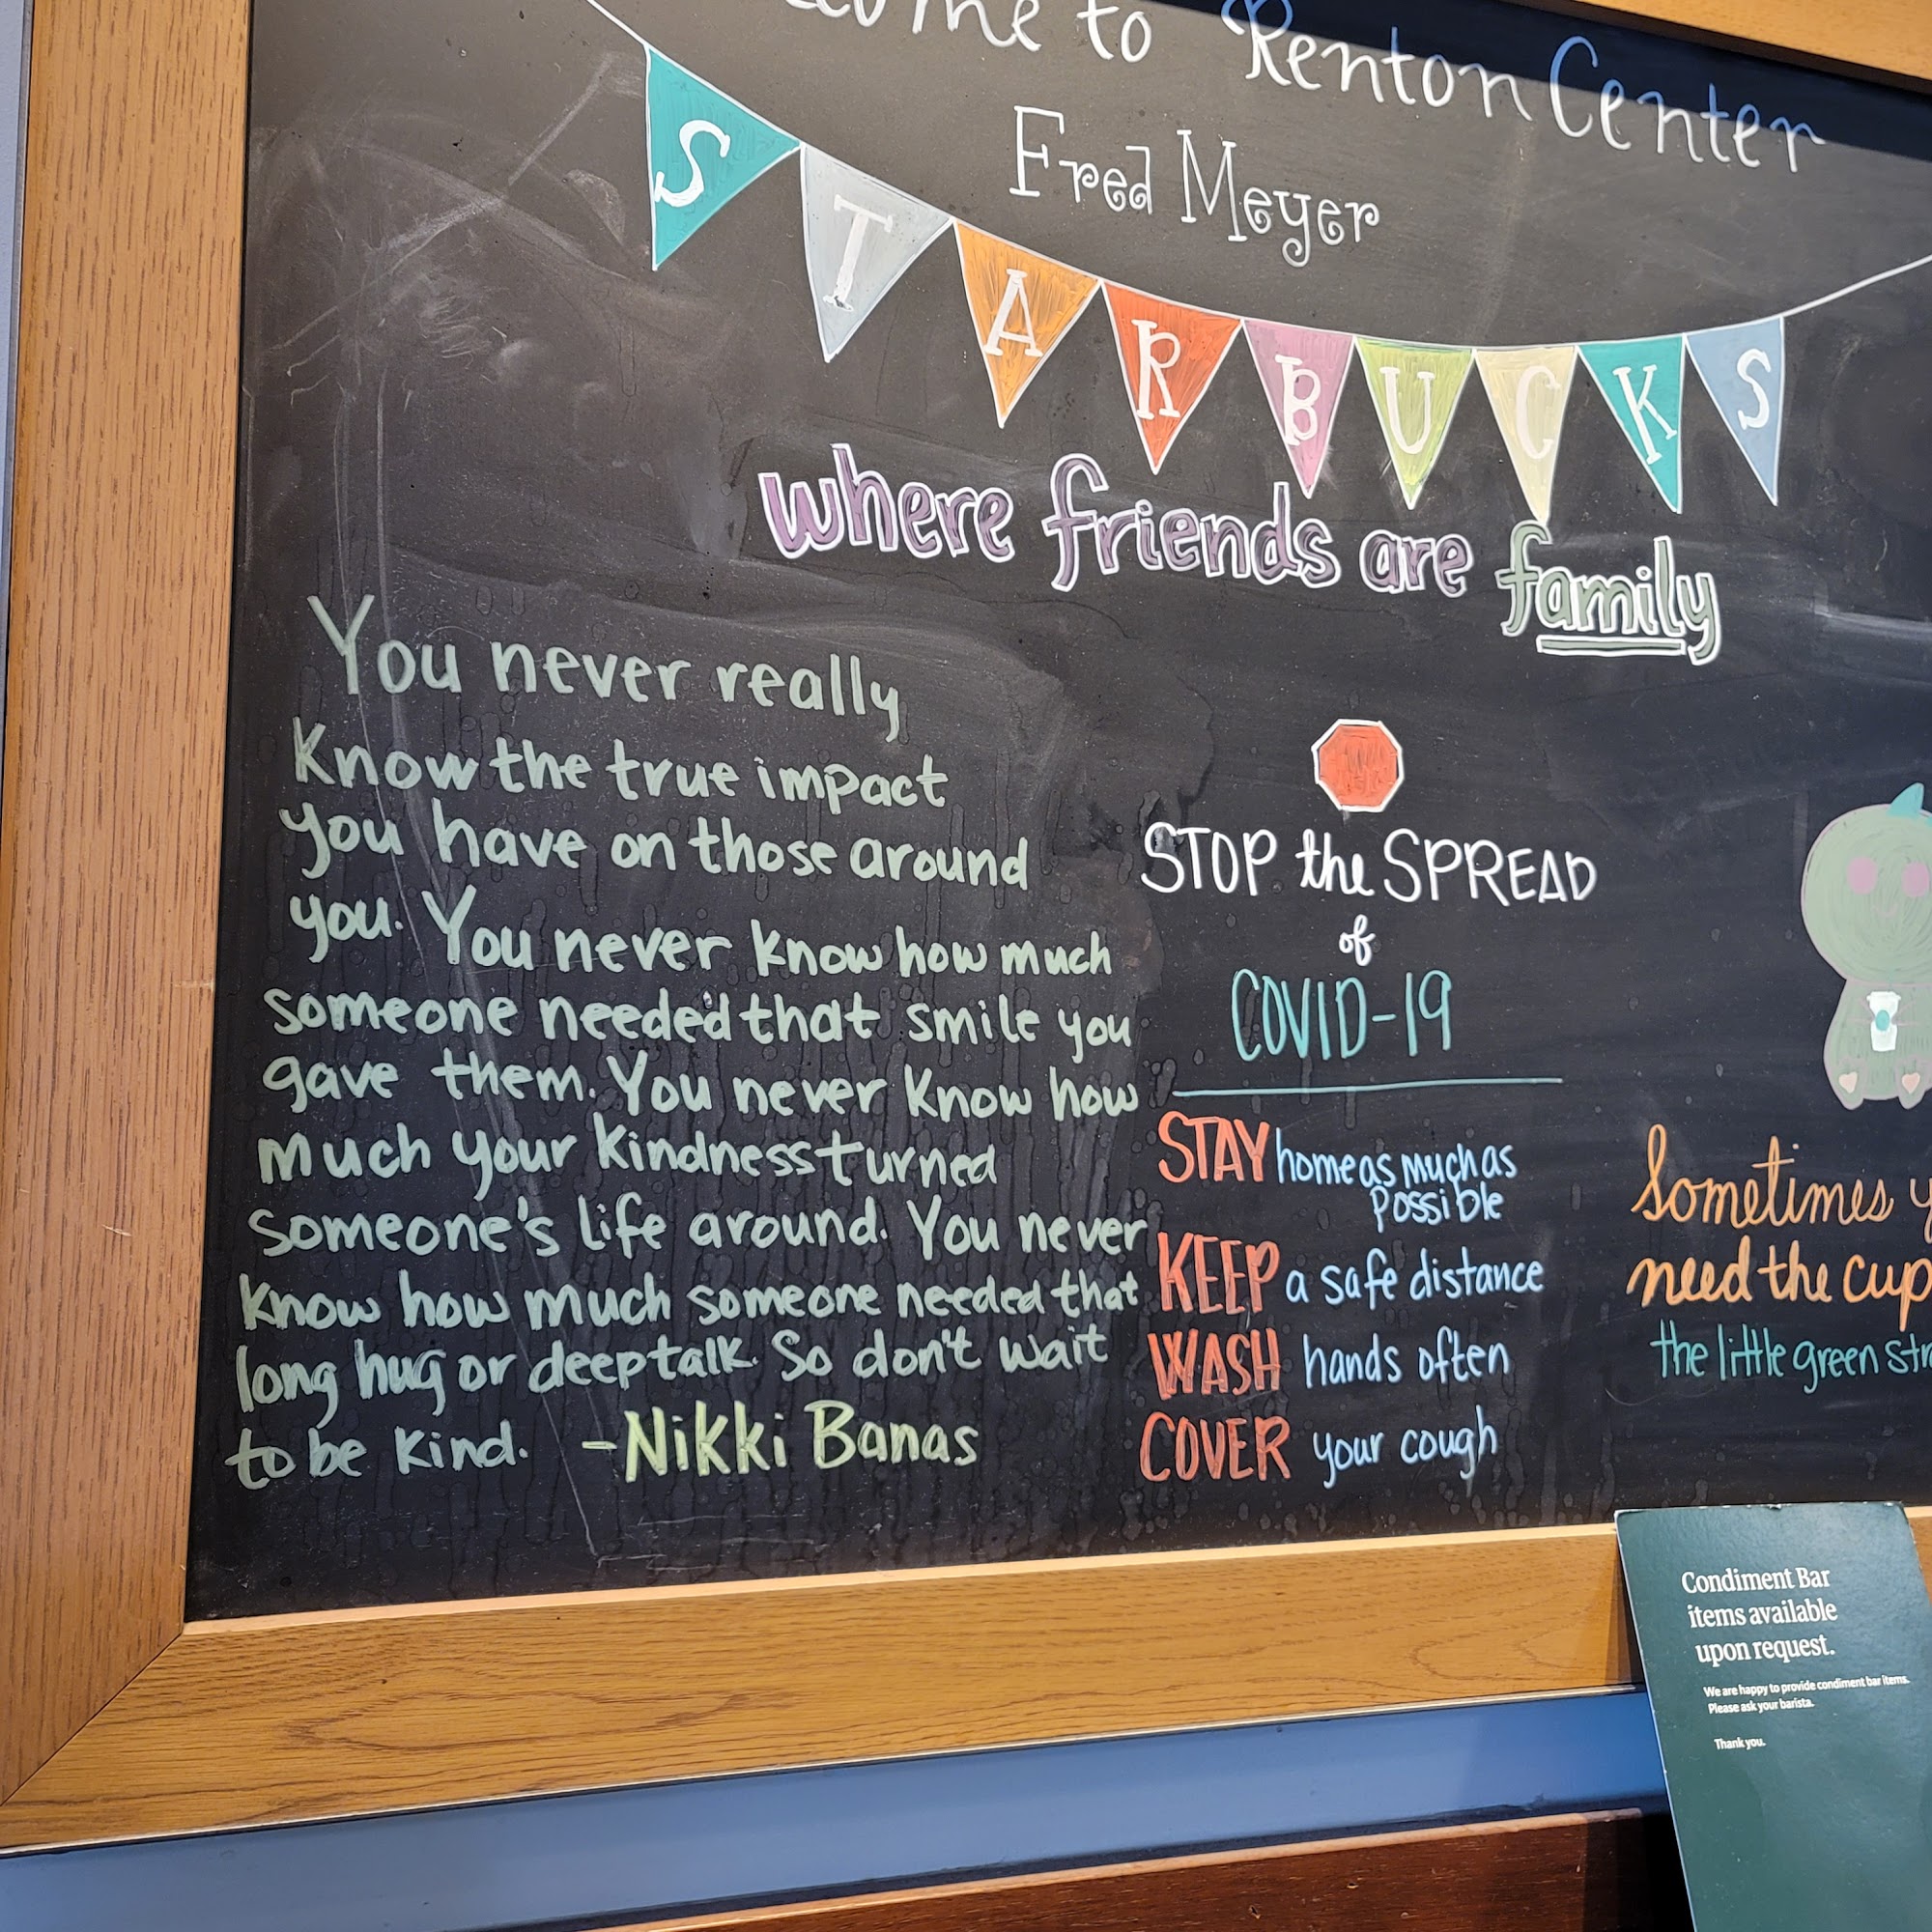 to Renton Center
Fred Meyer
STARBUCKS
where friends are family
You never really
Know the true impact
you have on those around
you. You never know how much
someone needed that smile you
gave them. You never know how
much your kindness turned
someone's life around. You never
know how much someone needed that
long hug or deep talk. So don't wait
to be kind. -Nikki Banas
STOP the SPREAD
of
COVID-19
STAY home as much as
possible
KEEP a safe distance
WASH hands often
COVER your cough
Sometimes
need the cup
the little green
Condiment Bar
items available
upon request.
We are happy to provide condiment bar items.
Please ask your barista.
Thank you.